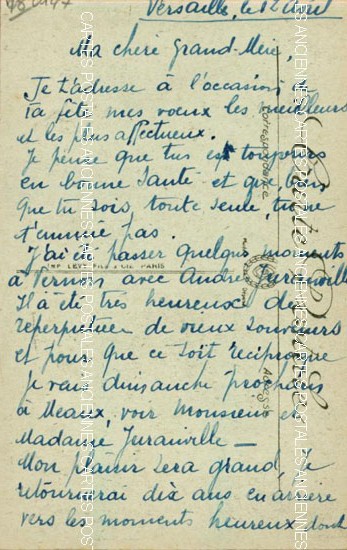 Versailles, le 12 avril
Ma chère Grand-Mère,
Je t'adresse à l'occasion de
ta fête, mes voeux les meilleurs
et les plus affectueux.
Je pense que tu es toujours
en bonne santé et que, bien
que tu sois toute seule, tu ne
t'ennuie pas.
J'ai été passer quelques moments
à Vernon avec André Juranville
Il a été très heureux de
reperpetuer de vieux souvenirs
et pour que ce soit réciproque
Je vais dimanche prochain
à Meaux, voir Monsieur et
Madame Juranville —
Mon plaisir sera grand, Je
retournerai dix ans en arrière
vers les moments heureux, dont
Correspondance
Adresse
Carte Postale
PARIS
CARTES POSTALES ANCIENNES